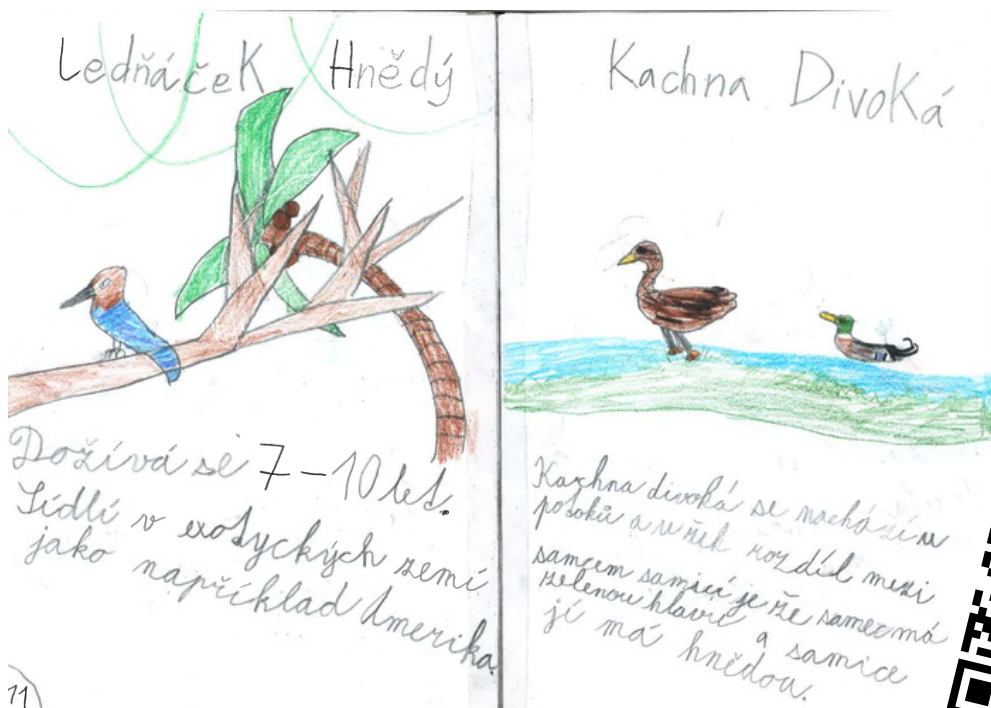 Ledňáček Hnědý
Dožívá se 7-10 let.
Sídlí v exotyckých zemí
jako například Amerika.
11
Kachna Divoká
Kachna divoká se nachází u
potoků a u řek rozdíl mezi
samcem samicí je že samec má
zelenou hlavu a samice
jí má hnědou.